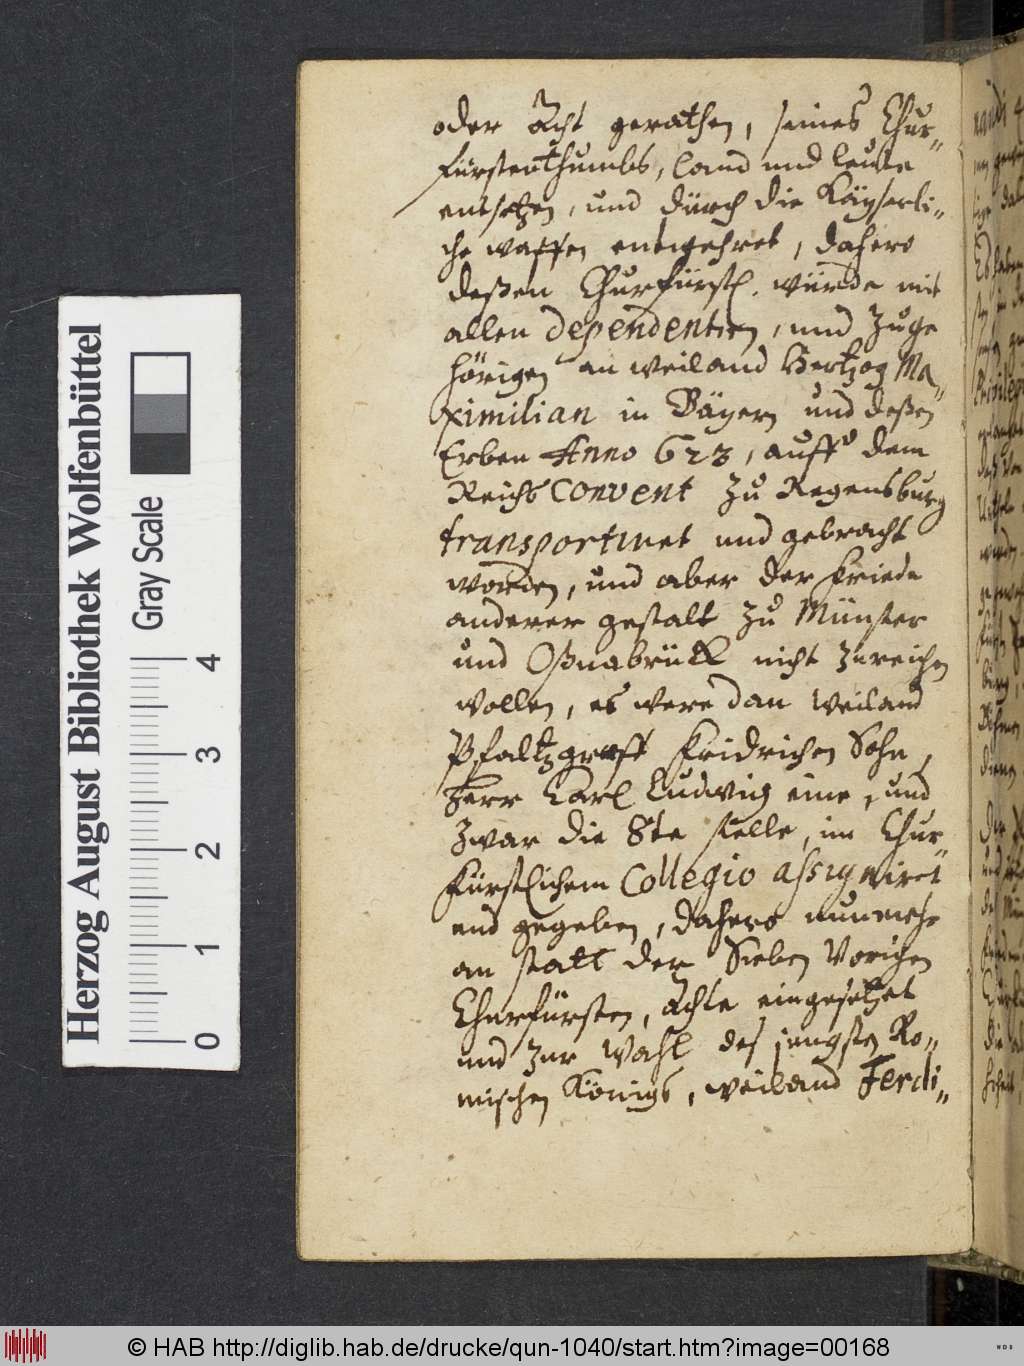 oder Acht gerathen, seines Chur-
fürstenthumbs, land und leute
entsetzen, und durch die Käyserli-
che waffen entwehret, dahero
deßen Churfürstl. würde mit
allen dependentien, und Zuge
hörigen an weiland Hertzog Ma-
ximilian in Bäyern und deßen
Erben Anno 623, auff dem
Reichs Convent zu Regensburg
transportiret und gebracht
worden, und aber der Friede
anderer gestalt zu Münster
und Oßnabrück nicht zureichen
wollen, es were dan weiland
Pfaltzgraff Fridrichen Sohn,
Herr Carl Ludwig eine, und
zwar die 8te stelle, im Chur-
fürstlichem Collegio assigniret
und gegeben, dahero nunmehr
an statt der Sieben Vorigen
Churfürsten, Achte eingesetzet
und zur Wahl des jungsten Ro-
mischen Königs, weiland Ferdi-
Herzog August Bibliothek Wolfenbüttel
Gray Scale
0 1 2 3 4
© HAB http://diglib.hab.de/drucke/qun-1040/start.htm?image=00168